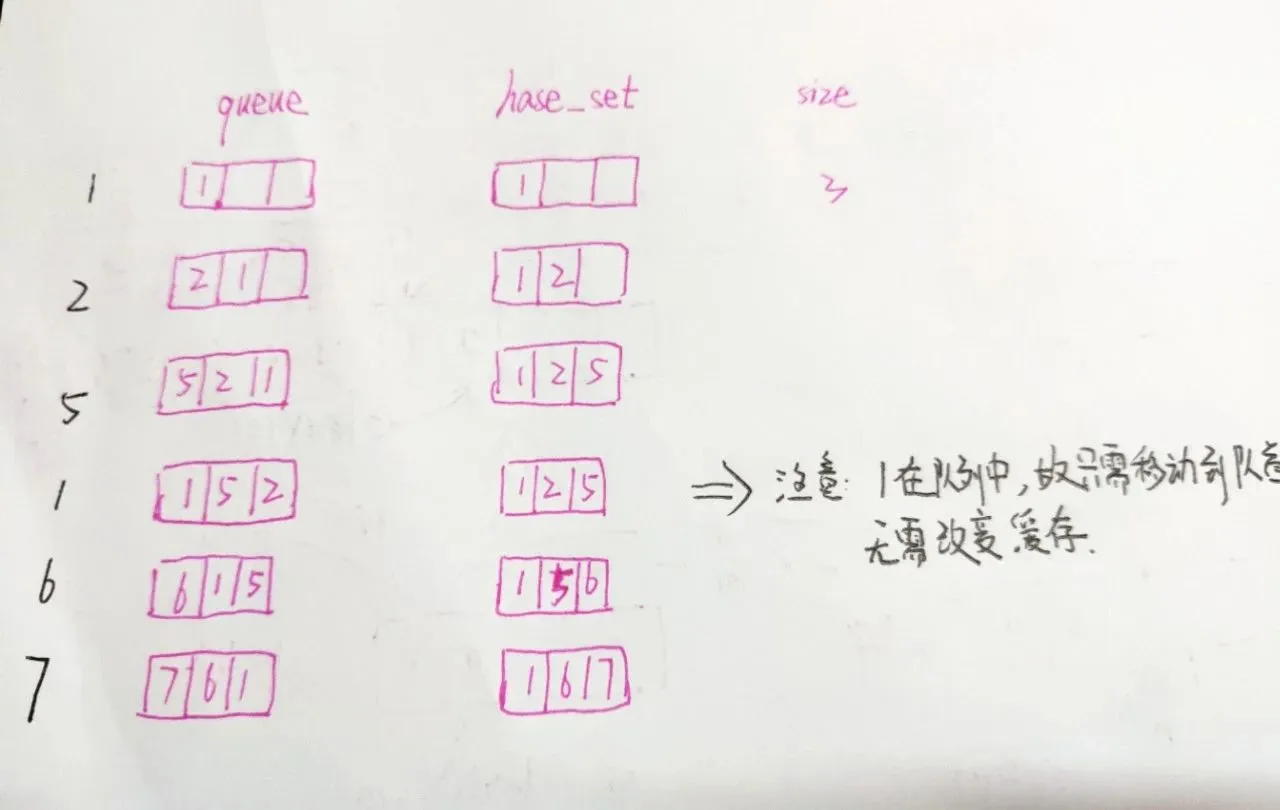 queue hase_set size
1 1 1 3
2 2 1 1 2
5 5 2 1 1 2 5
1 1 5 2 1 2 5 => 注意: 1在队列中,故只需移动到队首
无需改变缓存.
6 6 1 5 1 5 6
7 7 6 1 1 6 7